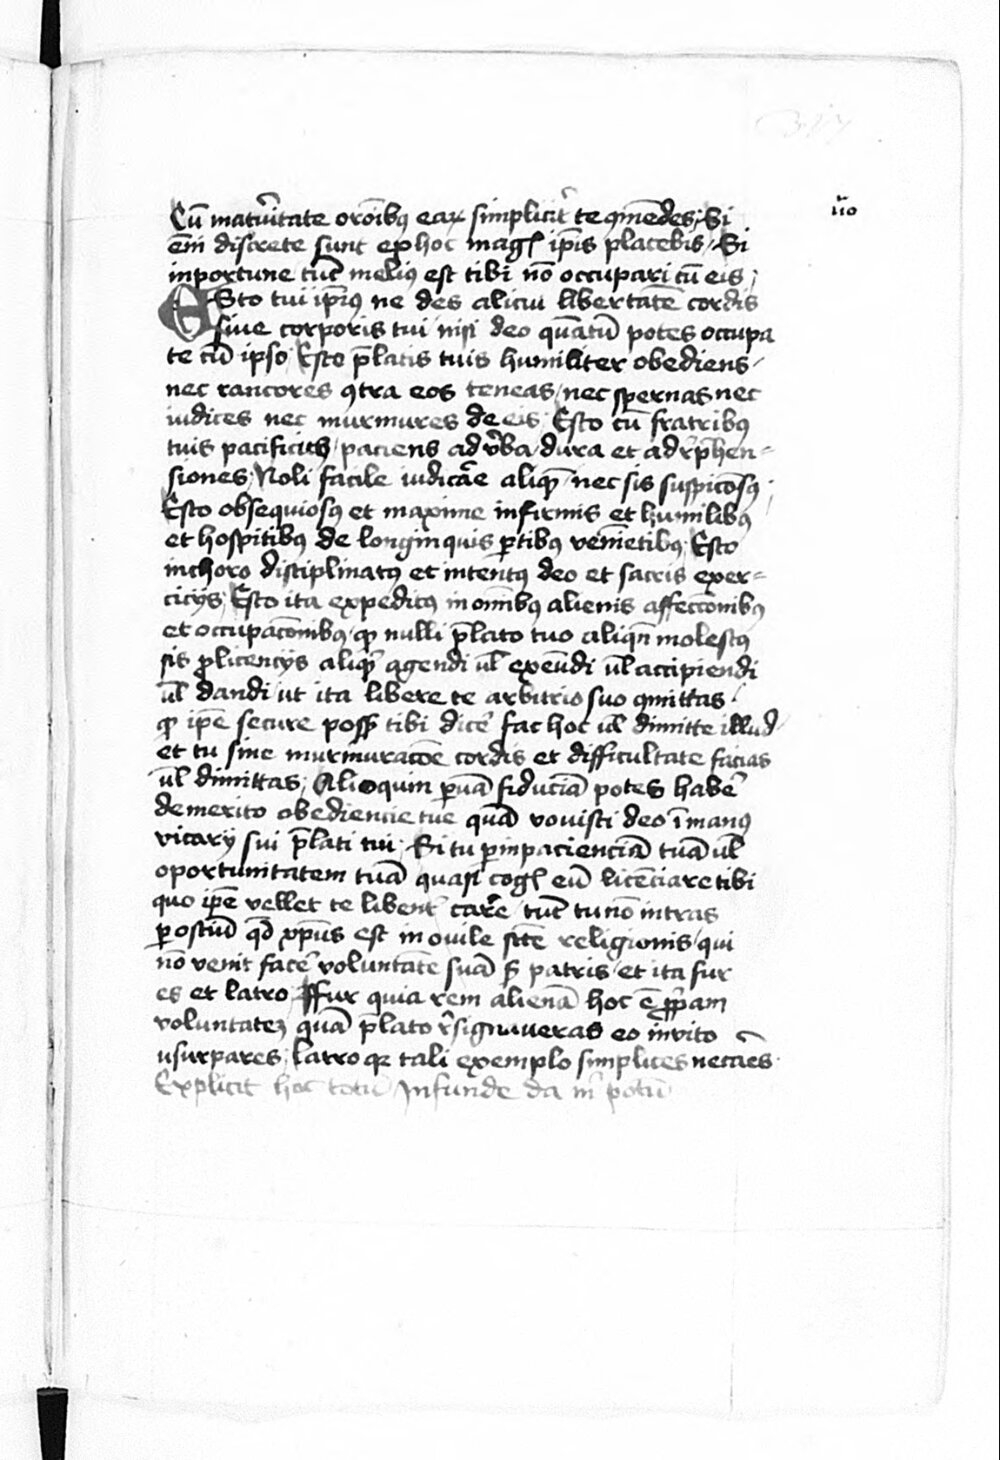 Cū mat'itate oroībꝰ eaꝝ simplicit' te ꝯmēdes, Si
em̄ discrete sunt ex hoc magꝭ ip̄is placebis, Si
inportune tūc meliꝰ est tibi nō occupari cū eis;
Esto tui ip̄iꝰ ne des alicui libertatē cordis
siue corporis tui nisi deo quātū potes occupa
te cū ipso Esto p̄latis tuis humiliter obediens
nec rancores ꝯtra eos teneas, nec spernas nec
iudices nec murmures de eis Esto cū fratribꝰ
tuis pacificus, paciens ad v̄ba dura et ad r̄p̄hen=
siones, Noli facile iudicāe aliqȝ̄ nec sis suspicōsꝰ;
Esto obsequiosꝰ et maxime infirmis et humilibꝰ
et hospitibꝰ de longinquis ꝑtibꝰ venīetibꝰ Esto
in choro disciplinatꝰ et intentꝰ deo et sacris exer=
cicijs, Esto ita expeditꝰ in om̄ibꝰ alienis affectōnibꝰ
et occupacōnibꝰ, ꝙ nulli p̄lato tuo aliqn̄ molestꝰ
sis ꝓ licencijs aliqȝ agendi ul̄ exeūdi ul̄ accipiendi
ul̄ dandi, ut ita libere te arbitrio suo ꝯmittas
ꝙ ip̄e secure possꝫ tibi dic̄e fac hoc ul̄ dimitte illud
et tu sine murmuracōe cordis et difficultate facias
ul̄ dimittas; Alioquin ꝑuā fiduciā potes hab̄e
de merito obediencie tue quā vouisti deo ī manꝰ
vicarij sui p̄lati tui; Si tu ꝑ inpacienciā tuā ul̄
oportunitatem tuā quasi cogꝭ eū licēciare tibi
quo ip̄e vellet te libent' car̄e, tūc tu nō intras
ꝑ ostiū qd̄ xp̄us est in ouile scē religionis, qui
nō venit fac̄e voluntatē suā sȝ patris et ita fur
es et latro, ffur quia rem alienā hoc ē ꝓp̄am
voluntateȝ quā p̄lato r̄signaueras eo inuito
usurpares, latro qꝫ tali exemplo simplices necāēs
Explicit hoc totū Infunde da m̄ potū